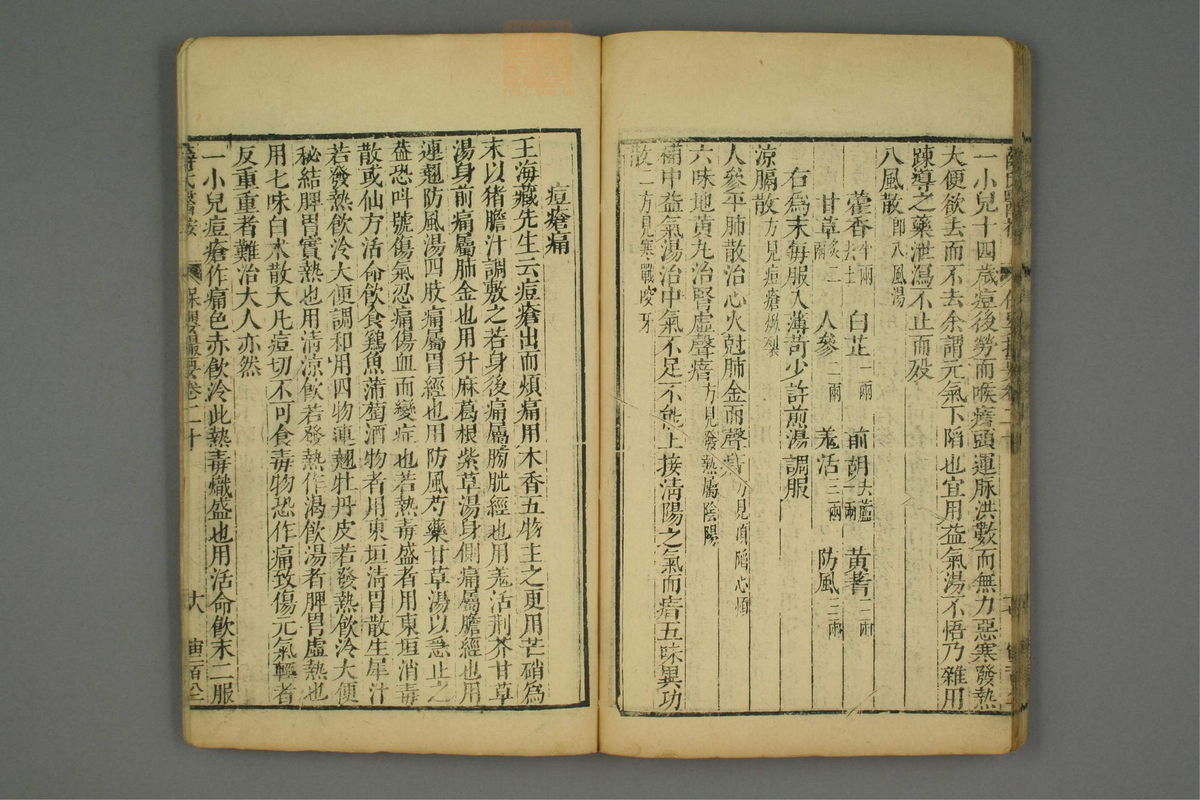 一小兒十四歲痘後勞而喉瘖頭運脉洪數而無力惡寒發熱
大便欲去而不去余謂元氣下陷也宜用益氣湯不悟乃雜用
踈導之藥泄瀉不止而歿
八風散 即八風湯
藿香 去土 半兩 白芷 一兩 前胡 去蘆 一兩 黃芪 二兩
甘草 炙二兩 人參 二兩 羗活 三兩 防風 三兩
右為末每服入薄荷少許煎湯調服
涼膈散 方見痘瘡
人參平肺散治心火尅肺金而聲 方見頂陷心煩
六味地黃丸治腎虛聲瘖 方見發熱屬陰陽
補中益氣湯治中氣不足不能上接清陽之氣而瘖五味異功
散 二方見寒戰咬牙
痘瘡痛
王海藏先生云痘瘡出而煩痛用木香五物主之更用芒硝為
末以猪膽汁調敷之若身後痛屬膀胱經也用羗活荆芥甘草
湯身前痛屬肺金也用升麻葛根紫草湯身側痛屬膽經也用
連翹防風湯四肢痛屬胃經也用防風芍藥甘草湯以急止之
葢恐呌號傷氣忍痛傷血而變症也若熱毒盛者用東垣消毒
散或仙方活命飲食鷄魚蒲萄酒物者用東垣清胃散生犀汁
若發熱飲冷大便調和用四物連翹牡丹皮若發熱飲冷大便
秘結脾胃實熱也用清凉飲若發熱作渴飲湯者脾胃虛熱也
用七味白朮散大凡痘切不可食毒物恐作痛致傷元氣輕者
反重重者難治大人亦然
一小兒痘瘡作痛色赤飲冷此熱毒熾盛也用活命飲末二服
薛氏醫按 保嬰撮要卷二十